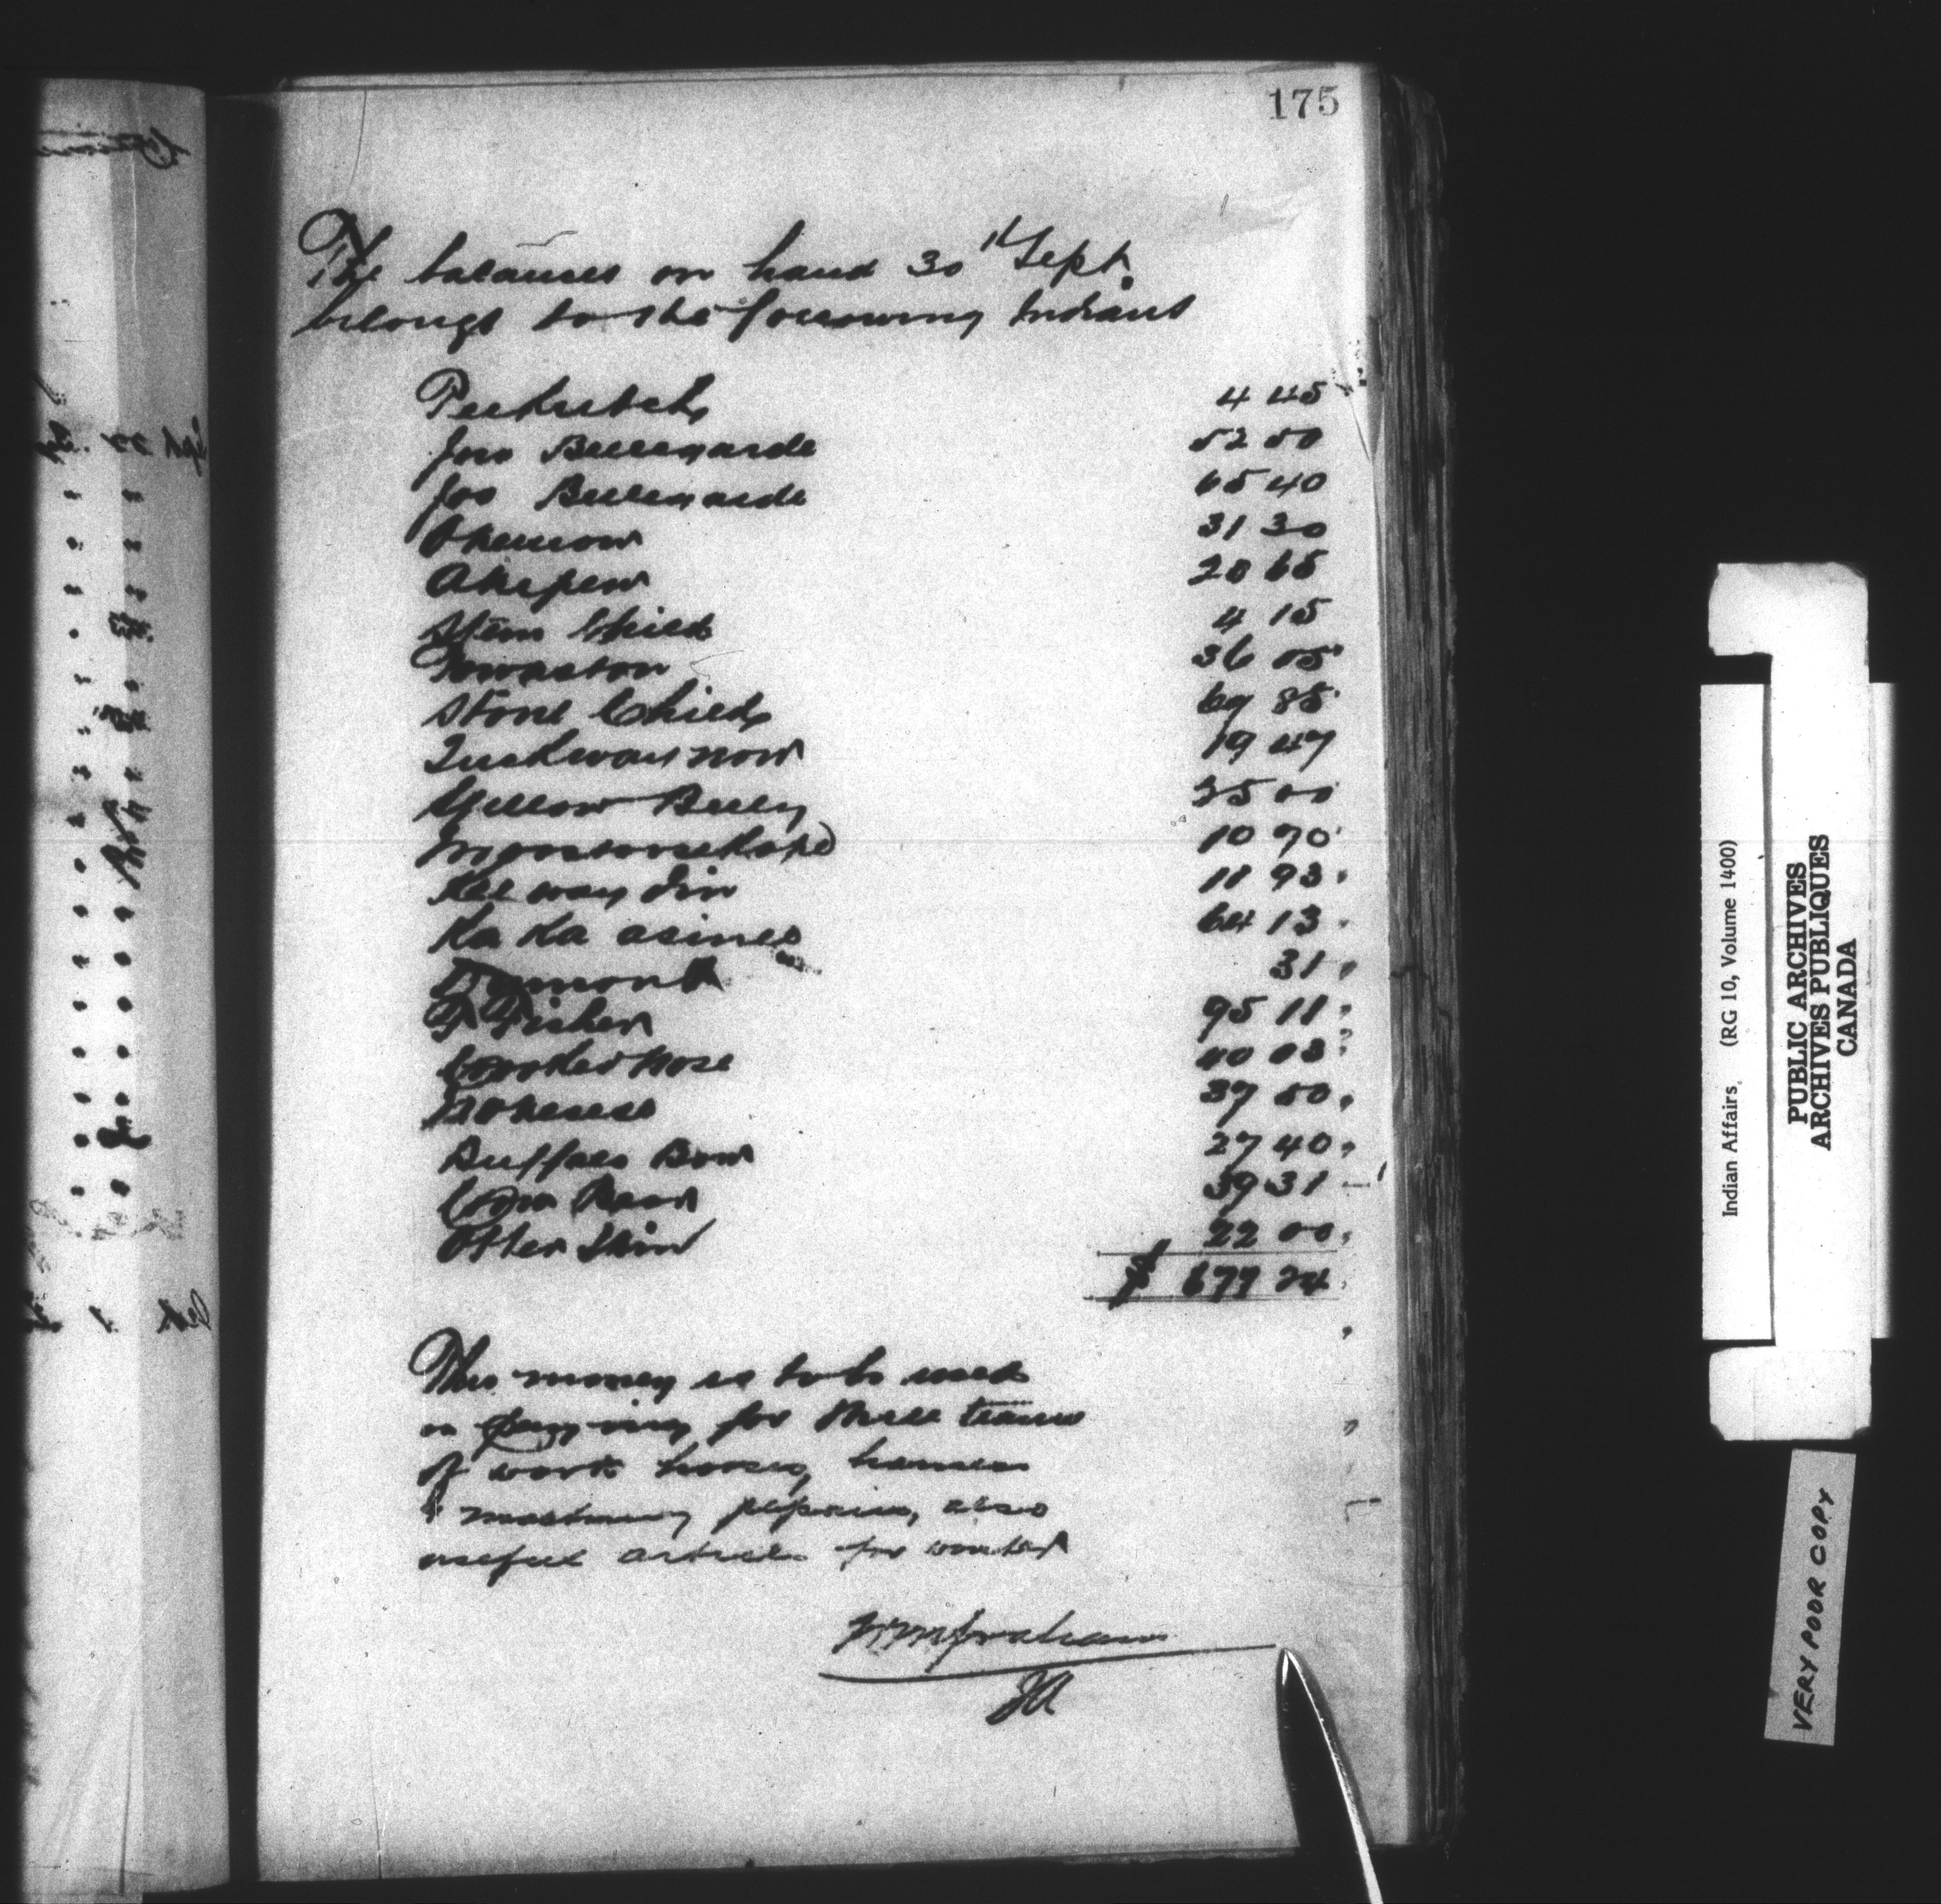 175
The balances on hand 30th Sept.
belongs to the following Indians
Peekutch 4 45
Jno Bellegarde 52 50
Jos Bellegarde 65 40
Okemow 31 30
Akapew 20 65
Stem Child 4 15
36 05
Stone Child 69 85
19 47
Yellow Belly 25 00
10 70
Kee way din 11 93
Ka Ka asinee 64 13
Dumont 31
F Fisher 95 11
Crooked Nose 40 03
37 50
Buffalo Bow 27 40
39 31
Otter Skin 22 00
$ 677 24
This money is to be used
in paying for three teams
of work horses, harness
& machinery repairs, also
useful articles for winter
WM Graham
IA
Indian Affairs. (RG 10, Volume 1400)
PUBLIC ARCHIVES
ARCHIVES PUBLIQUES
CANADA
VERY POOR COPY